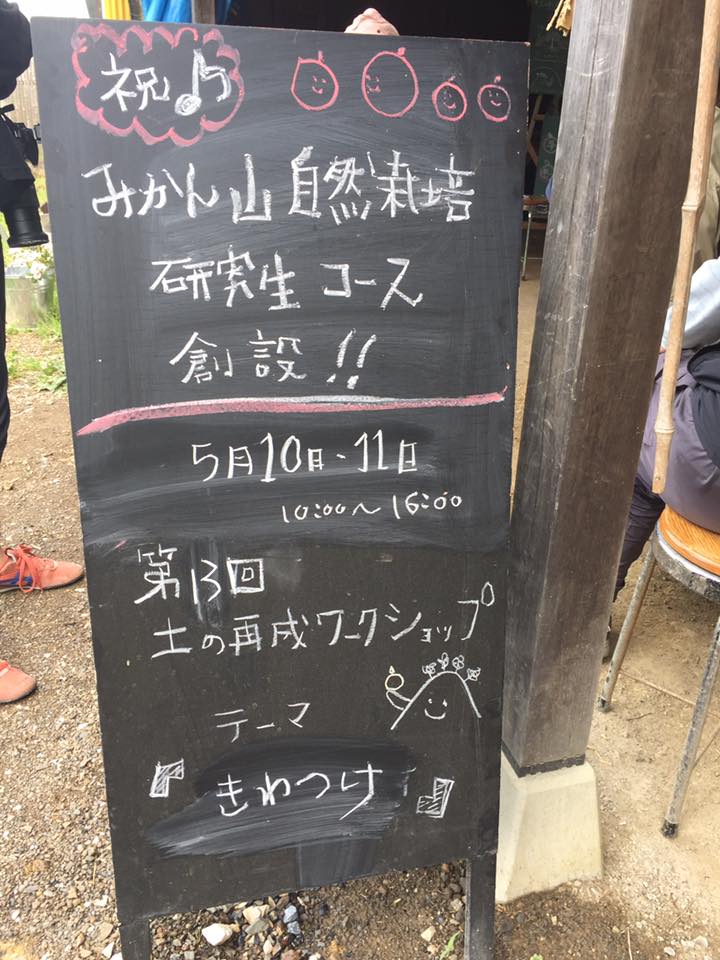 祝♪
みかん山自然栽培
研究生コース
創設!!
5月10日-11日
10:00~16:00
第13回
土の再成ワークショップ
テーマ
『きわつけ』